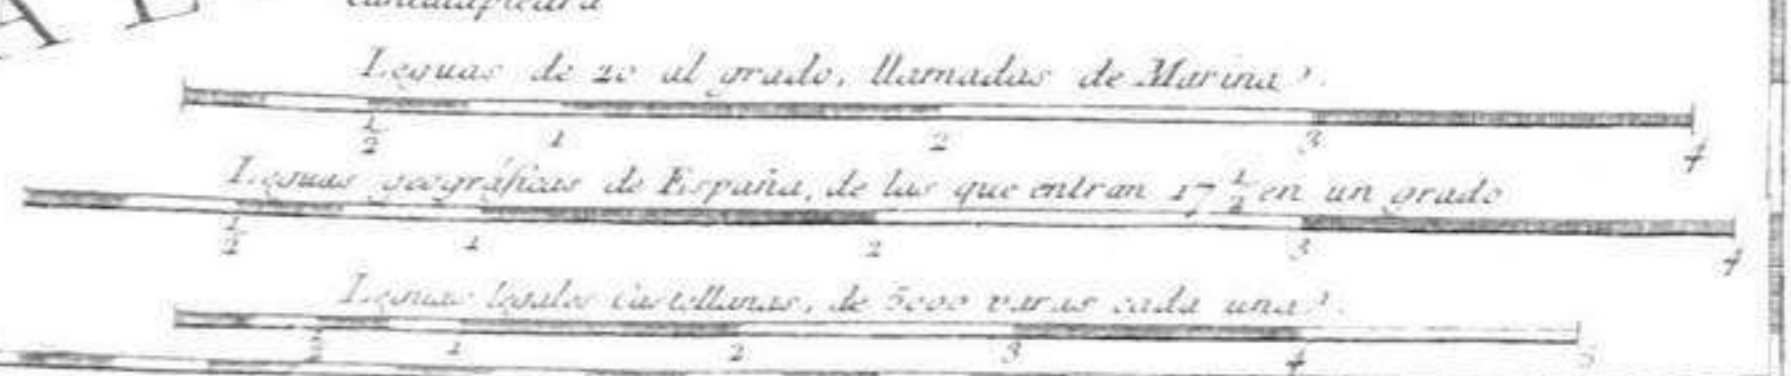 Leguas de 20 al grado, llamadas de Marina.
1/2 1 2 3 4
Leguas geográficas de España, de las que entran 17 1/2 en un grado
1/2 1 2 3 4
Leguas legales Castellanas, de 5000 varas cada una.
1/2 1 2 3 4 5